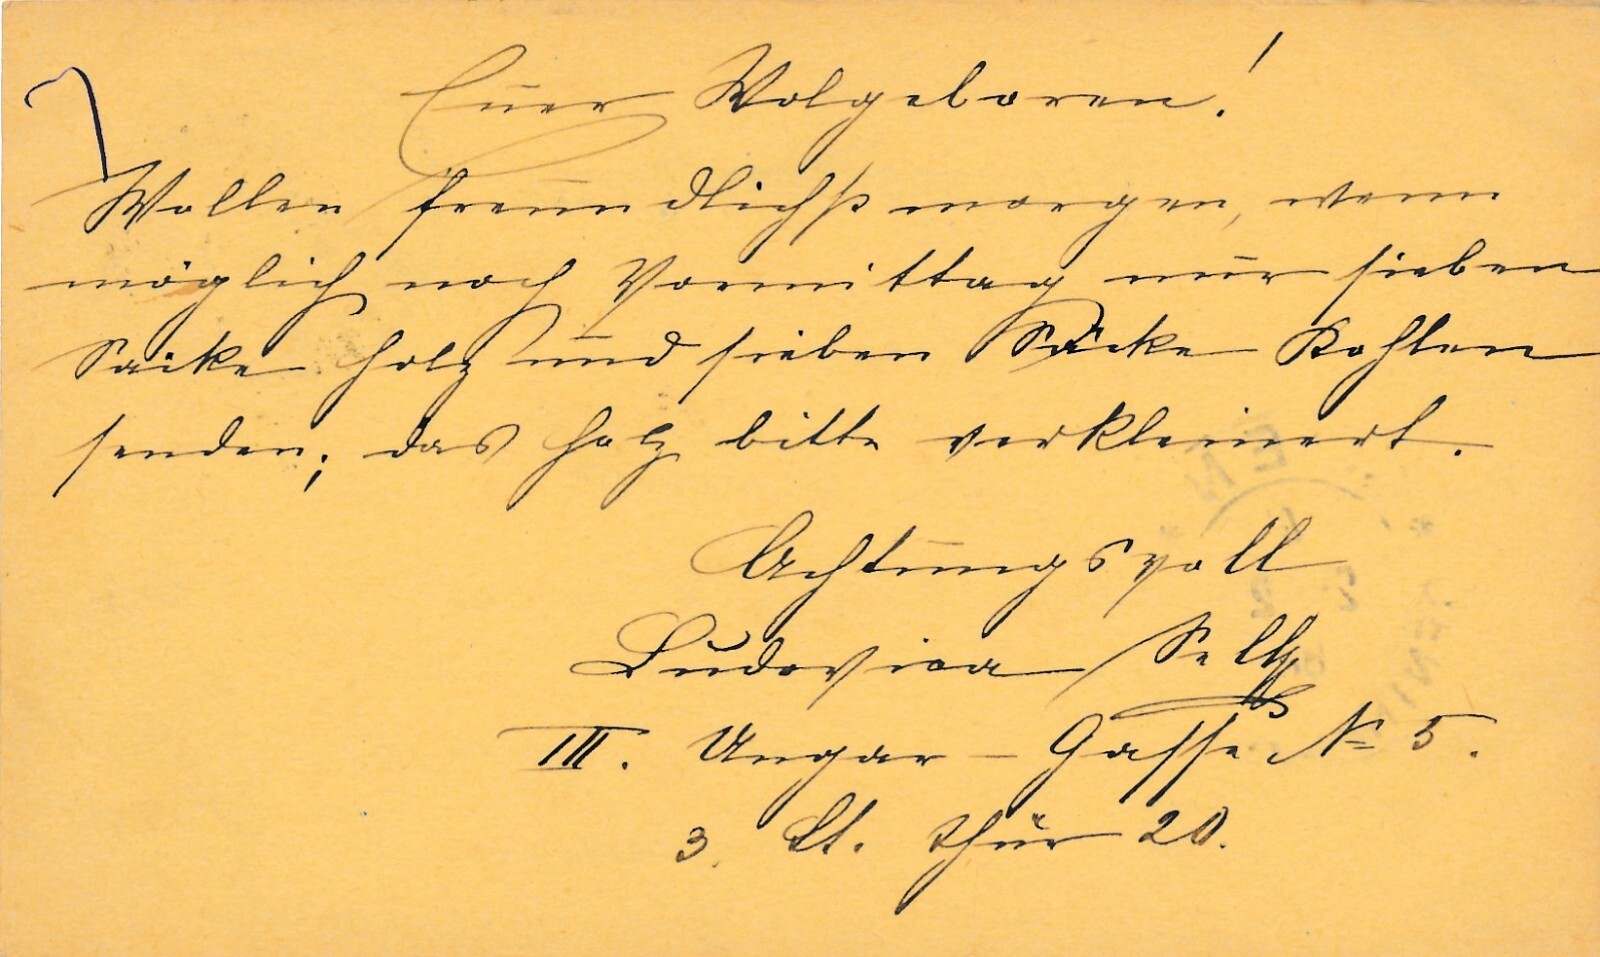 Euer Wolgeboren!
Wollen freundlichst morgen, wenn
möglich noch Vormittag nur sieben
Säcke Holz und sieben Säcke Kohlen
senden; das Holz bitte verkleinert.
Achtungsvoll
Ludovica
III. Ungar-Gasse No 5.
3. St. Thür 20.